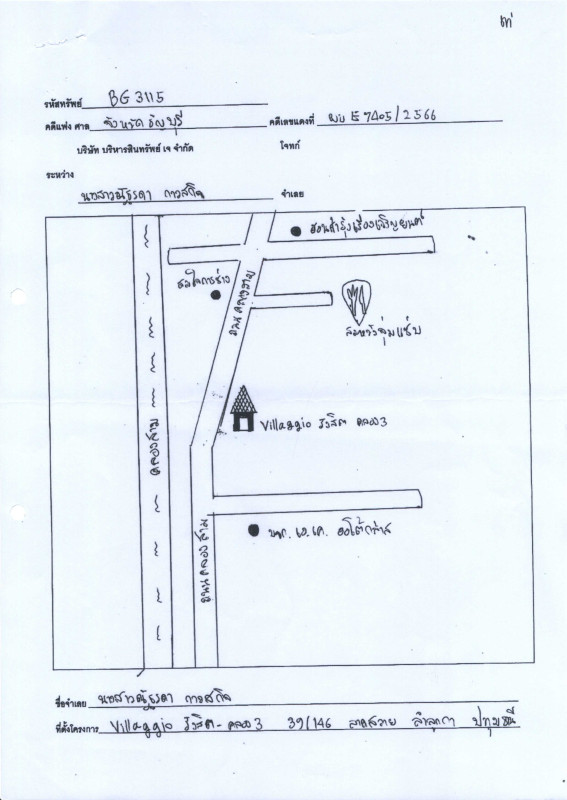 รหัสทรัพย์ BG 3115
คดีแพ่ง ศาล จังหวัดธัญบุรี คดีเลขแดงที่ ผบ E 7405/2566
บริษัท บริหารสินทรัพย์ เจ จำกัด โจทก์
ระหว่าง
นางสาวณัฐรดา ถาวสกิจ จำเลย
ฮอนด้ารุ่งเรืองเจริญยนต์
ชลใจการช่าง
ถนนคลองสาม
สมหวังตุ๋มแซ่บ
คลองสาม
Villaggio รังสิต คลอง3
บจก. เอ.เค. ออโต้กลาส
ถนนคลองสาม
ชื่อจำเลย นางสาวณัฐรดา ถาวสกิจ
ที่ตั้งโครงการ Villaggio รังสิต-คลอง3 39/146 ลาดสวาย ลำลูกกา ปทุมธานี